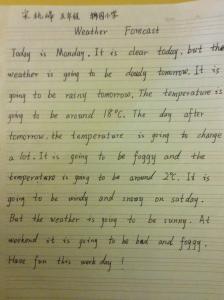 五年级 小学
Weather Forecast
Today is Monday. It is clear today, but the
weather is going to be cloudy tomorrow. It is
going to be rainy tomorrow. The temperature is
going to be around 18°C. The day after
tomorrow. the temperature is going to change
a lot. It is going to be foggy and the
temperature is going to be around 2°C. It is
going to be windy and snowy on satday.
But the weather is going to be sunny. At
weekend it is going to be bad and foggy.
Have fun this work day !